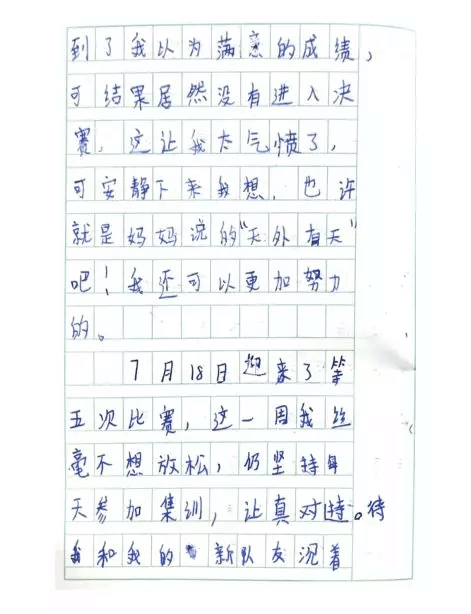 到了我以为满意的成绩，
可结果居然没有进入决
赛，这让我太气愤了，
可安静下来我想，也许
就是妈妈说的“天外有天”
吧！我还可以更加努力
的。
7月18日迎来了第
五次比赛，这一周我丝
毫不想放松，仍坚持每
天参加集训，让真对持。待
我和我的新队友沉着